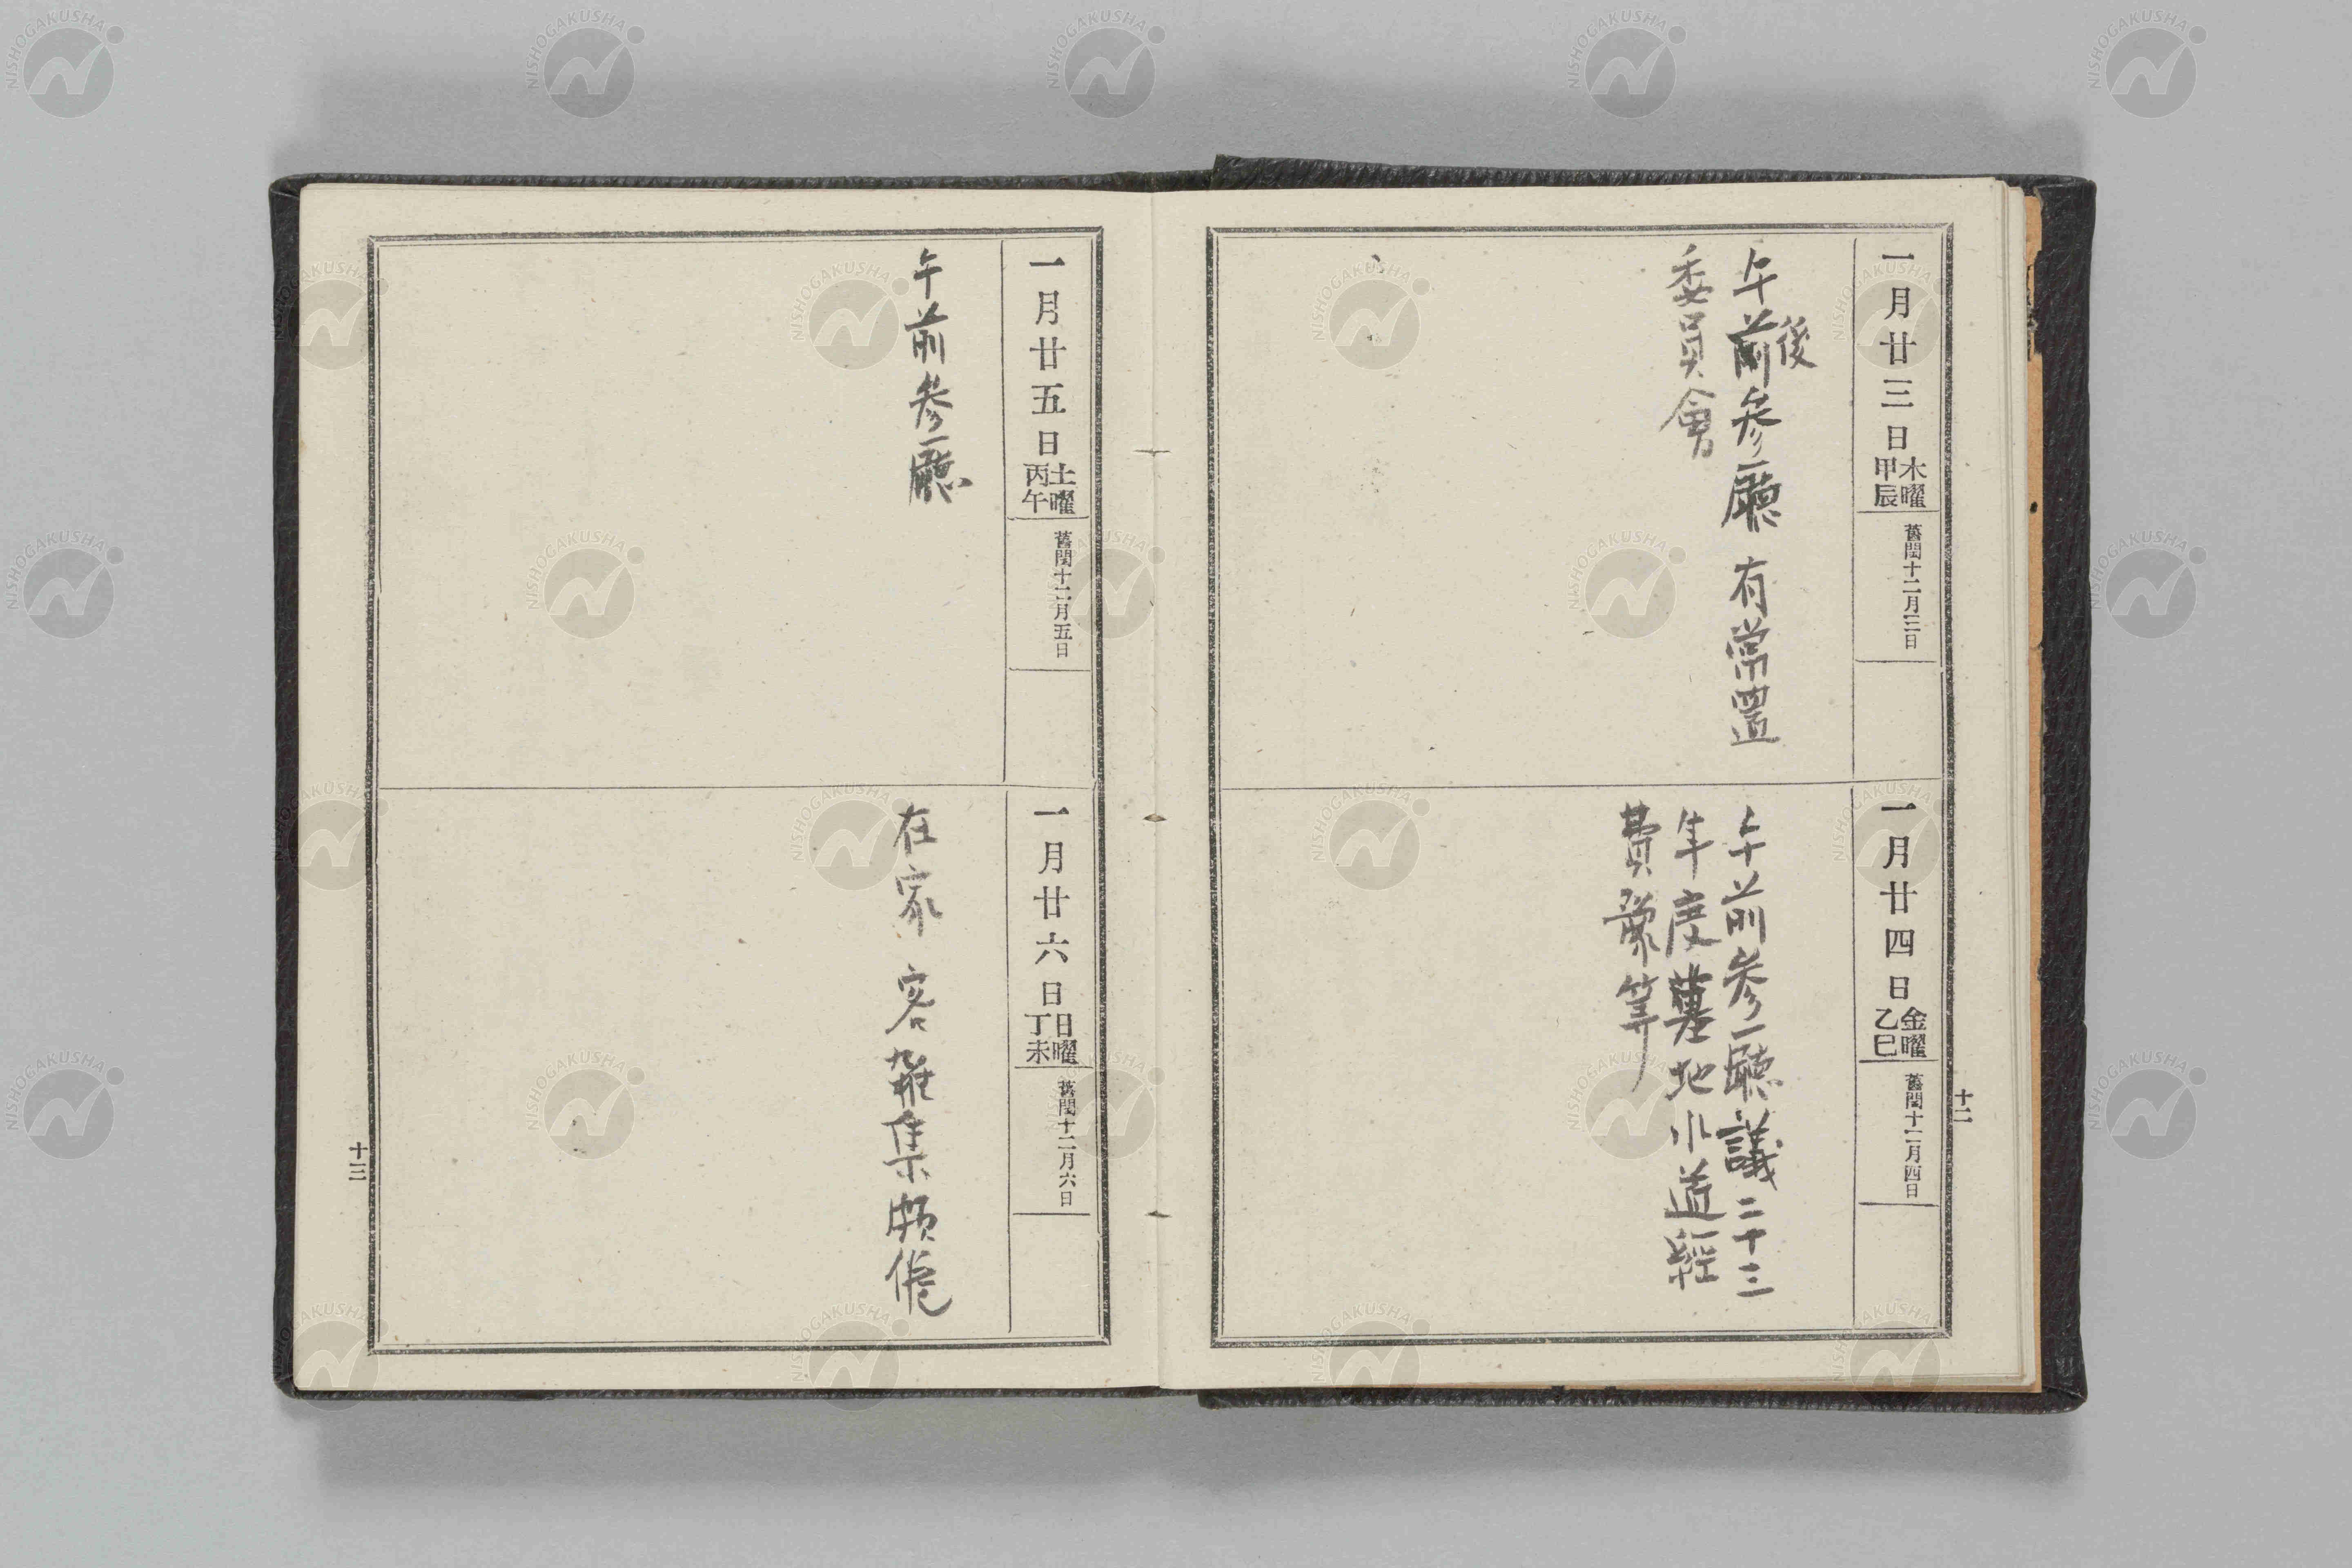 一月廿三日 木曜 甲辰 舊閏十二月三日
午前後參廳 有常置
委員會
一月廿四日 金曜 乙巳 舊閏十二月四日
午前參廳議二十三
年度墓地小道經
費豫等
十二
一月廿五日 土曜 丙午 舊閏十二月五日
午前參廳
一月廿六日 日曜 丁未 舊閏十二月六日
在家 客雜集頗倦
十三
NISHOGAKUSHA